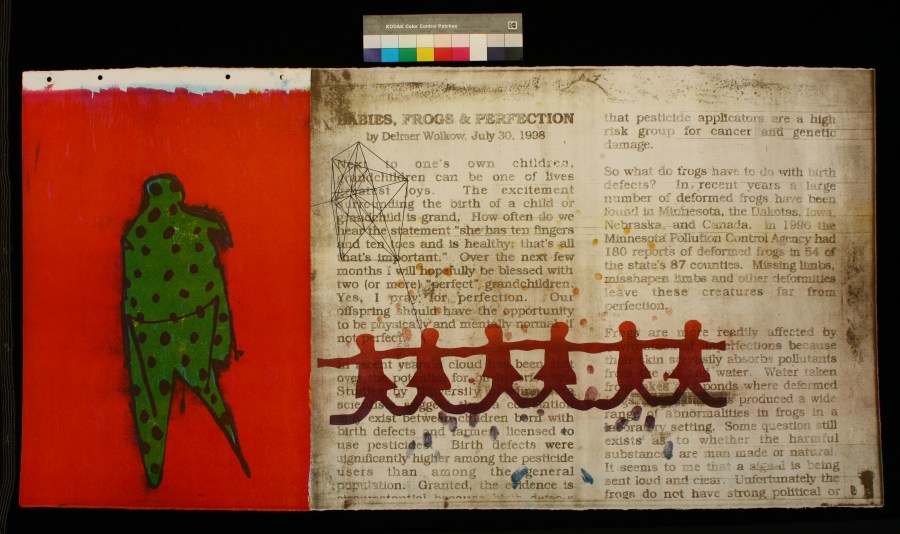 KODAK Color Control Patches
Kodak
BABIES, FROGS & PERFECTION
by Delmer Wolkow, July 30, 1998
Next to one's own children,
grandchildren can be one of lives
greatest joys. The excitement
surrounding the birth of a child or
grandchild is grand. How often do we
hear the statement "she has ten fingers
and ten toes and is healthy; that's all
that's important." Over the next few
months I will hopefully be blessed with
two (or more) "perfect" grandchildren.
Yes, I pray for perfection. Our
offspring should have the opportunity
to be physically and mentally normal if
not perfect.
In recent years a cloud has been
over the potential for
Studies by University
exist between children born with
birth defects and farmers licensed to
use pesticides. Birth defects were
significantly higher among the pesticide
users than among the general
population. Granted, the evidence is
circumstantial because birth defects
that pesticide applicators are a high
risk group for cancer and genetic
damage.
So what do frogs have to do with birth
defects? In recent years a large
number of deformed frogs have been
found in Minnesota, the Dakotas, Iowa,
Nebraska, and Canada. In 1996 the
Minnesota Pollution Control Agency had
180 reports of deformed frogs in 54 of
the state's 87 counties. Missing limbs,
misshapen limbs and other deformities
leave these creatures far from
perfection.
Frogs are more readily affected by
imperfections because
their skin so easily absorbs pollutants
from the water. Water taken
from ponds where deformed
produced a wide
range of abnormalities in frogs in a
laboratory setting. Some question still
exists as to whether the harmful
substances are man made or natural.
It seems to me that a signal is being
sent loud and clear. Unfortunately the
frogs do not have strong political or